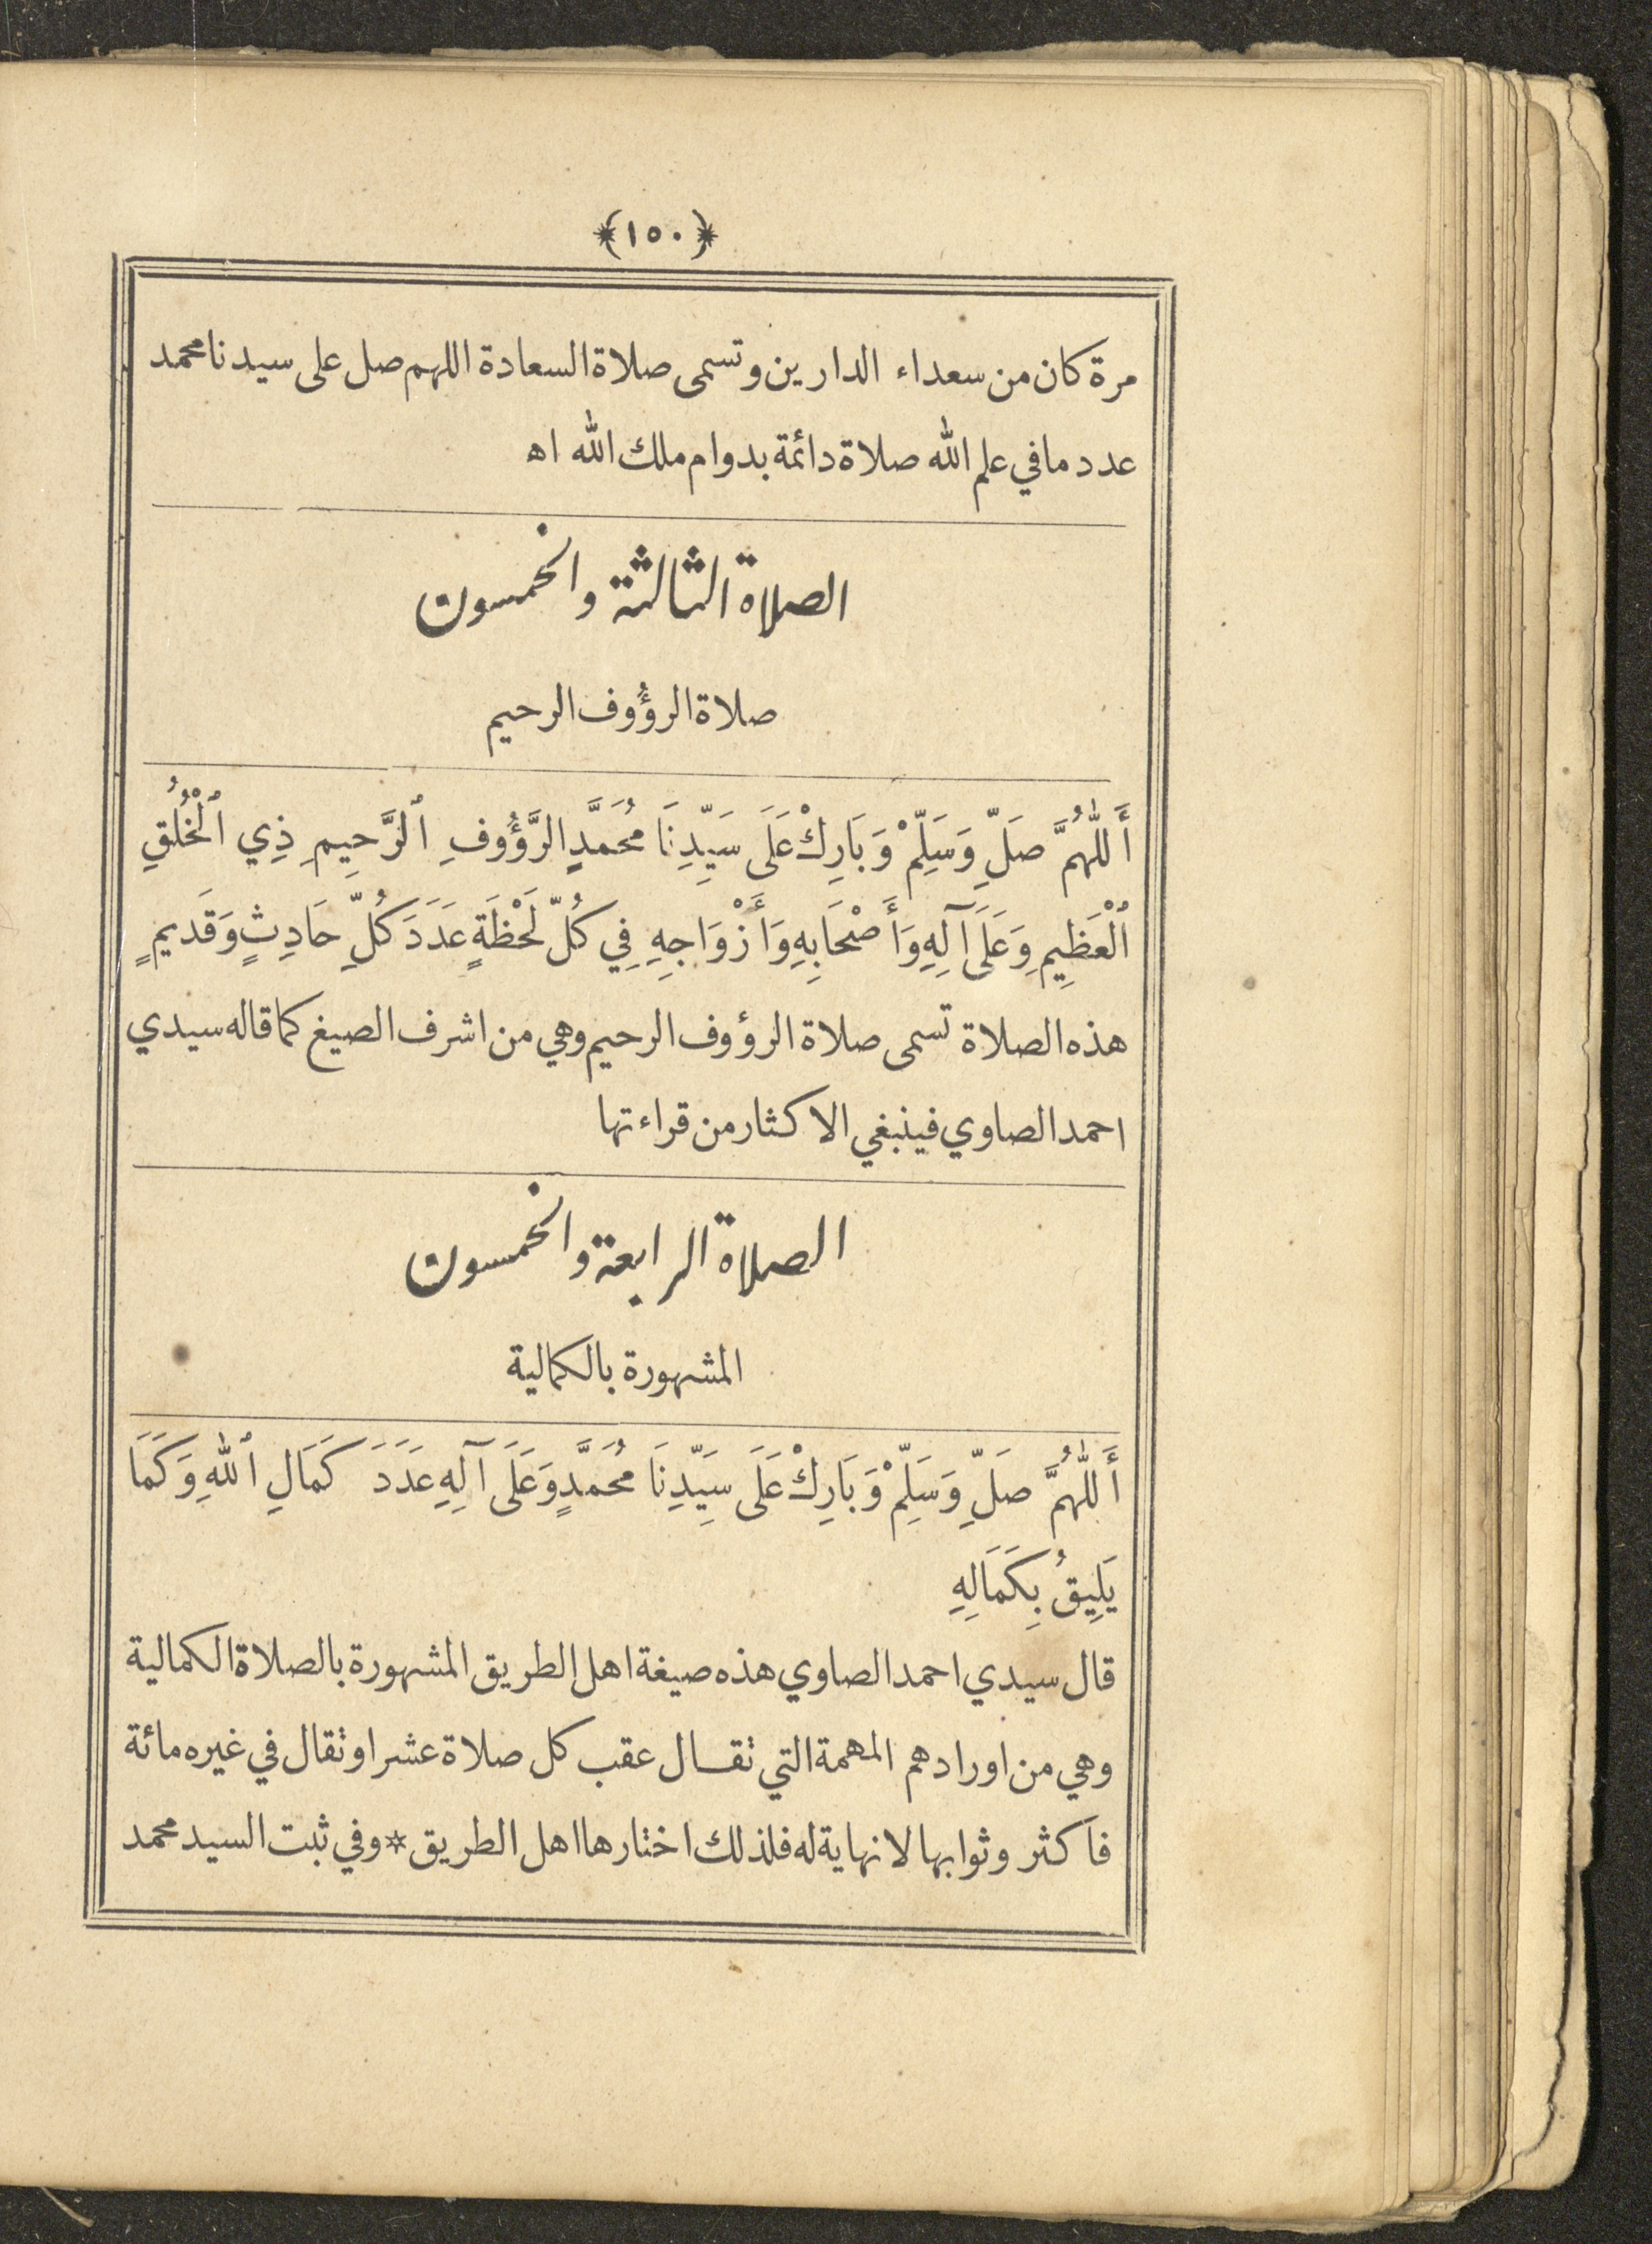 ﴿١٥٠﴾
مرة كان من سعداء الدارين وتسمى صلاة السعادة اللهم صل على سيدنا محمد
عدد ما في علم الله صلاة دائمة بدوام ملك الله اه
الصلاة الثالثة والخمسون
صلاة الرؤُوف الرحيم
أَللّٰهُمَّ صَلِّ وَسَلِّمْ وَبَارِكْ عَلَى سَيِّدِنَا مُحَمَّدٍ الرَّؤُوفِ ٱلرَّحِيمِ ذِي ٱلْخُلُقِ
ٱلْعَظِيمِ وَعَلَى آلِهِ وَأَصْحَابِهِ وَأَزْوَاجِهِ فِي كُلِّ لَحْظَةٍ عَدَدَ كُلِّ حَادِثٍ وَقَدِيمٍ
هذه الصلاة تسمى صلاة الرؤوف الرحيم وهي من اشرف الصيغ كما قاله سيدي
احمد الصاوي فينبغي الاكثار من قراءتها
الصلاة الرابعة والخمسون
المشهورة بالكمالية
أَللّٰهُمَّ صَلِّ وَسَلِّمْ وَبَارِكْ عَلَى سَيِّدِنَا مُحَمَّدٍ وَعَلَى آلِهِ عَدَدَ كَمَالِ ٱللهِ وَكَمَا
يَلِيقُ بِكَمَالِهِ
قال سيدي احمد الصاوي هذه صيغة اهل الطريق المشهورة بالصلاة الكمالية
وهي من اورادهم المهمة التي تقال عقب كل صلاة عشرا وتقال في غيره مائة
فاكثر وثوابها لا نهاية له فلذلك اختارها اهل الطريق * وفي ثبت السيد محمد